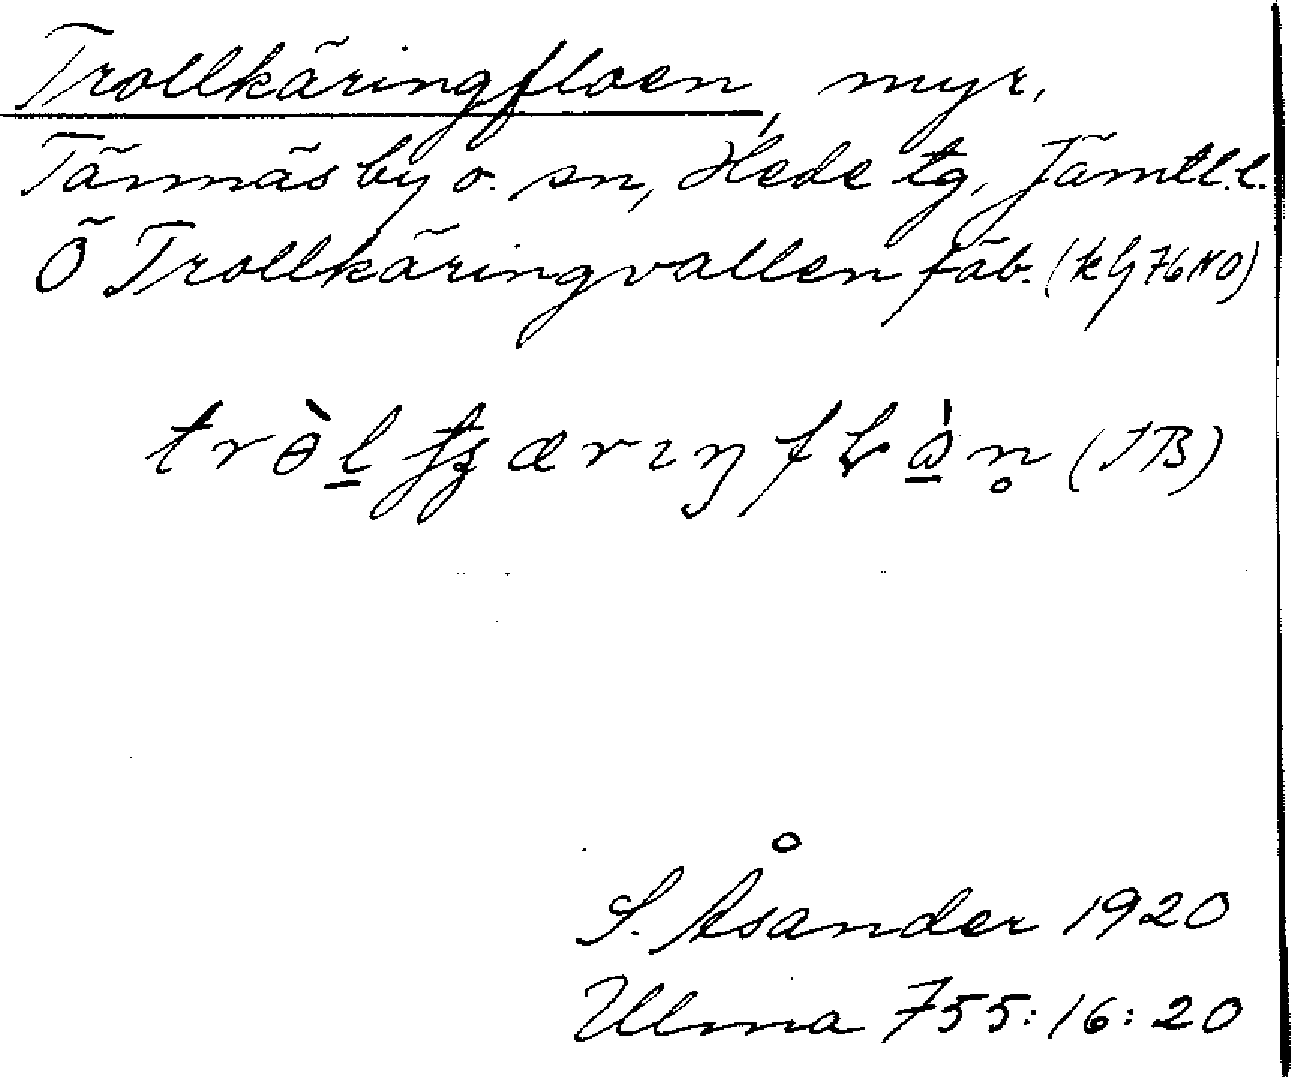 Trollkäringfloen, myr,
Tännäs by o. sn, Hede tg, Jämtl.l.
Ö Trollkäringvallen fäb. (kG 76 NO)
(JB)
S. Åsander 1920
Ulma 755:16:20